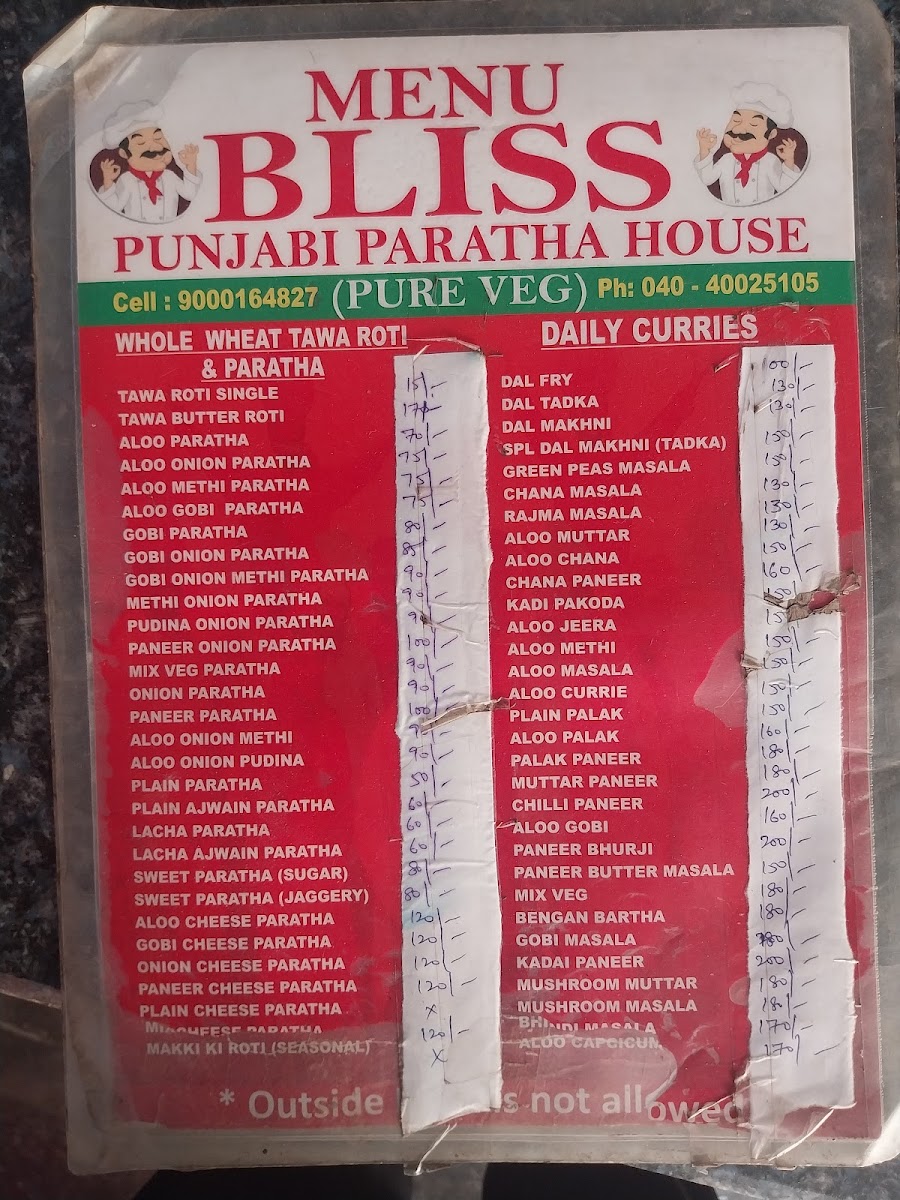 MENU
BLISS
PUNJABI PARATHA HOUSE
Cell : 9000164827 (PURE VEG) Ph: 040 - 40025105
WHOLE WHEAT TAWA ROTI
& PARATHA
TAWA ROTI SINGLE 15/-
TAWA BUTTER ROTI
ALOO PARATHA 70/-
ALOO ONION PARATHA 75/-
ALOO METHI PARATHA
ALOO GOBI PARATHA
GOBI PARATHA 80/-
GOBI ONION PARATHA
GOBI ONION METHI PARATHA 90/-
METHI ONION PARATHA 90/-
PUDINA ONION PARATHA
PANEER ONION PARATHA 100/-
MIX VEG PARATHA 90/-
ONION PARATHA 90/-
PANEER PARATHA 100/-
ALOO ONION METHI
ALOO ONION PUDINA 90/-
PLAIN PARATHA 50/-
PLAIN AJWAIN PARATHA 60/-
LACHA PARATHA 60/-
LACHA AJWAIN PARATHA 60/-
SWEET PARATHA (SUGAR) 80/-
SWEET PARATHA (JAGGERY) 80/-
ALOO CHEESE PARATHA 120/-
GOBI CHEESE PARATHA 120/-
ONION CHEESE PARATHA 120/-
PANEER CHEESE PARATHA 120/-
PLAIN CHEESE PARATHA x
CHEESE PARATHA 120/-
MAKKI KI ROTI (SEASONAL) x
DAILY CURRIES
DAL FRY
DAL TADKA 130/-
DAL MAKHNI 130/-
SPL DAL MAKHNI (TADKA) 150/-
GREEN PEAS MASALA 150/-
CHANA MASALA 130/-
RAJMA MASALA 130/-
ALOO MUTTAR 130/-
ALOO CHANA 150/-
CHANA PANEER 160/-
KADI PAKODA
ALOO JEERA
ALOO METHI 150/-
ALOO MASALA 150/-
ALOO CURRIE 150/-
PLAIN PALAK 150/-
ALOO PALAK 160/-
PALAK PANEER 180/-
MUTTAR PANEER 180/-
CHILLI PANEER 200/-
ALOO GOBI 160/-
PANEER BHURJI 200/-
PANEER BUTTER MASALA
MIX VEG 180/-
BENGAN BARTHA 180/-
GOBI MASALA
KADAI PANEER 200/-
MUSHROOM MUTTAR 180/-
MUSHROOM MASALA 180/-
BHINDI MASALA 170/-
ALOO CAPCICUM 170/-
* Outside is not allowed